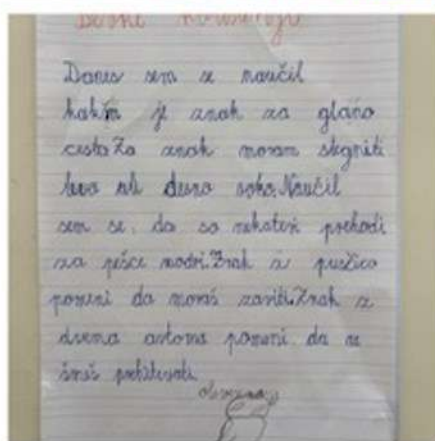 Danes sem se naučil
kakšn je znak za glavno
cesto.Za znak moram stegniti
levo ali desno roko.Naučil
sem se, da so nekateri prehodi
za pešce modri.Znak s puščico
pomeni da moraš zaviti.Znak z
dvema avtoma pomeni, da ne
smeš prehitevati.